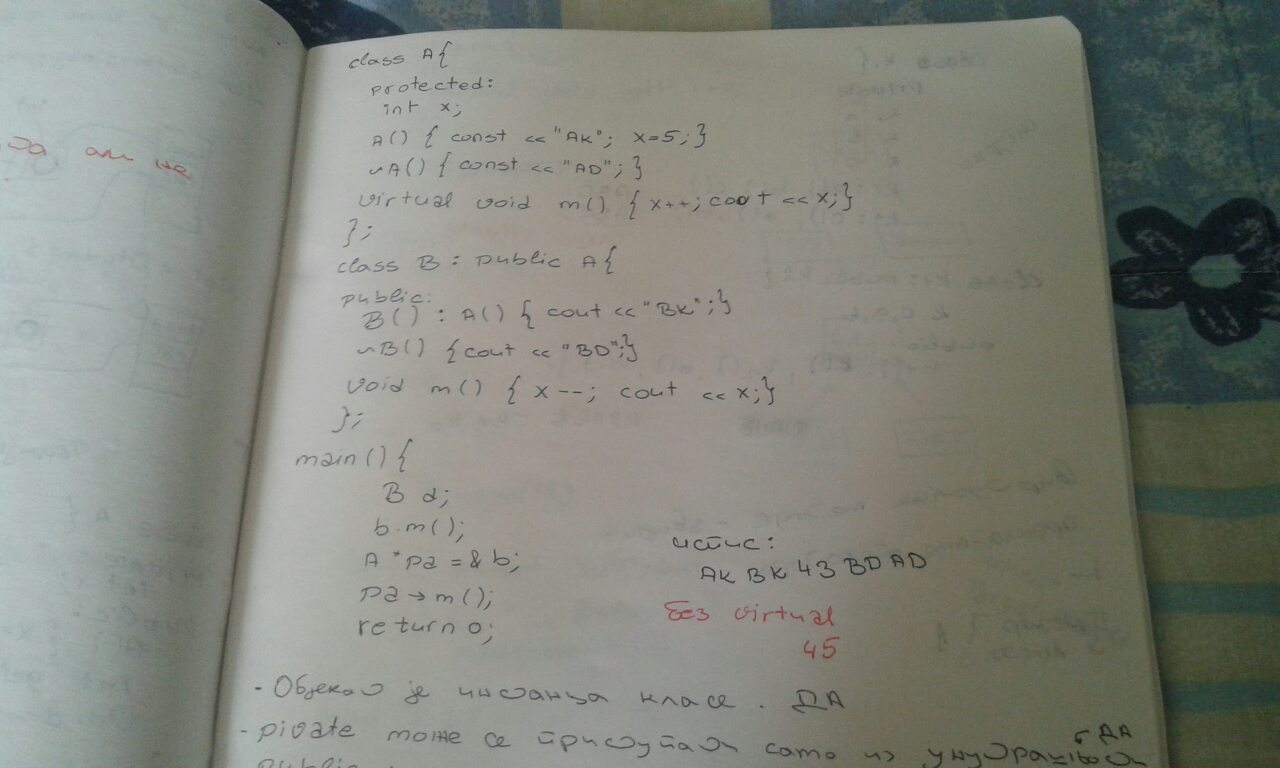 да али не
class A{
protected:
int x;
A() { const << "AK"; x=5; }
~A() { const << "AD"; }
virtual void m() { x++; cout << x; }
};
class B : public A{
public:
B() : A() { cout << "BK"; }
~B() { cout << "BD"; }
void m() { x--; cout << x; }
};
main() {
B a;
b.m();
A *pa = & b;
pa→m();
return 0;
испис:
AK BK 43 BD AD
без virtual
45
- Објекат је инстанца класе. ДА
- pivate може се приступати само из ДА
public